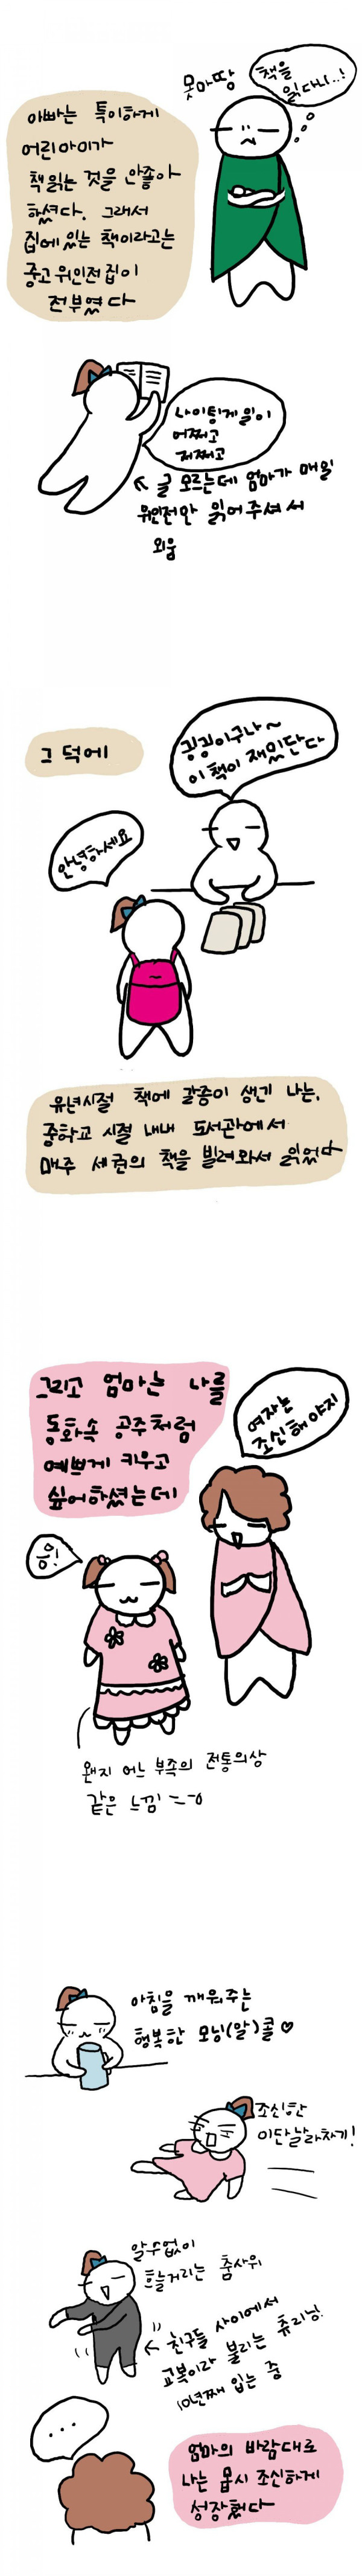 못마땅
책을
읽다니..!
아빠는 특이하게
어린아이가
책읽는 것을 안좋아
하셨다. 그래서
집에 있는 책이라고는
중고 위인전집이
전부였다
나이팅게일이
어쩌고
저쩌고
글 모르는데 엄마가 매일
위인전만 읽어주셔서
외움
그 덕에
굉굉이구나~
이 책이 재밌단다
안녕하세요
유년시절 책에 갈증이 생긴 나는,
중학교 시절 내내 도서관에서
매주 세권의 책을 빌려와서 읽었다
그리고 엄마는 나를
동화속 공주처럼
예쁘게 키우고
싶어하셨는데
여자는
조신해야지
응!
왠지 어느 부족의 전통의상
같은 느낌
아침을 깨워주는
행복한 모닝(알)콜♡
조신한
이단날라차기!
알수없이
흐늘거리는 춤사위
친구들 사이에서
교복이라 불리는 츄리닝.
10년째 입는 중
...
엄마의 바람대로
나는 몹시 조신하게
성장했다